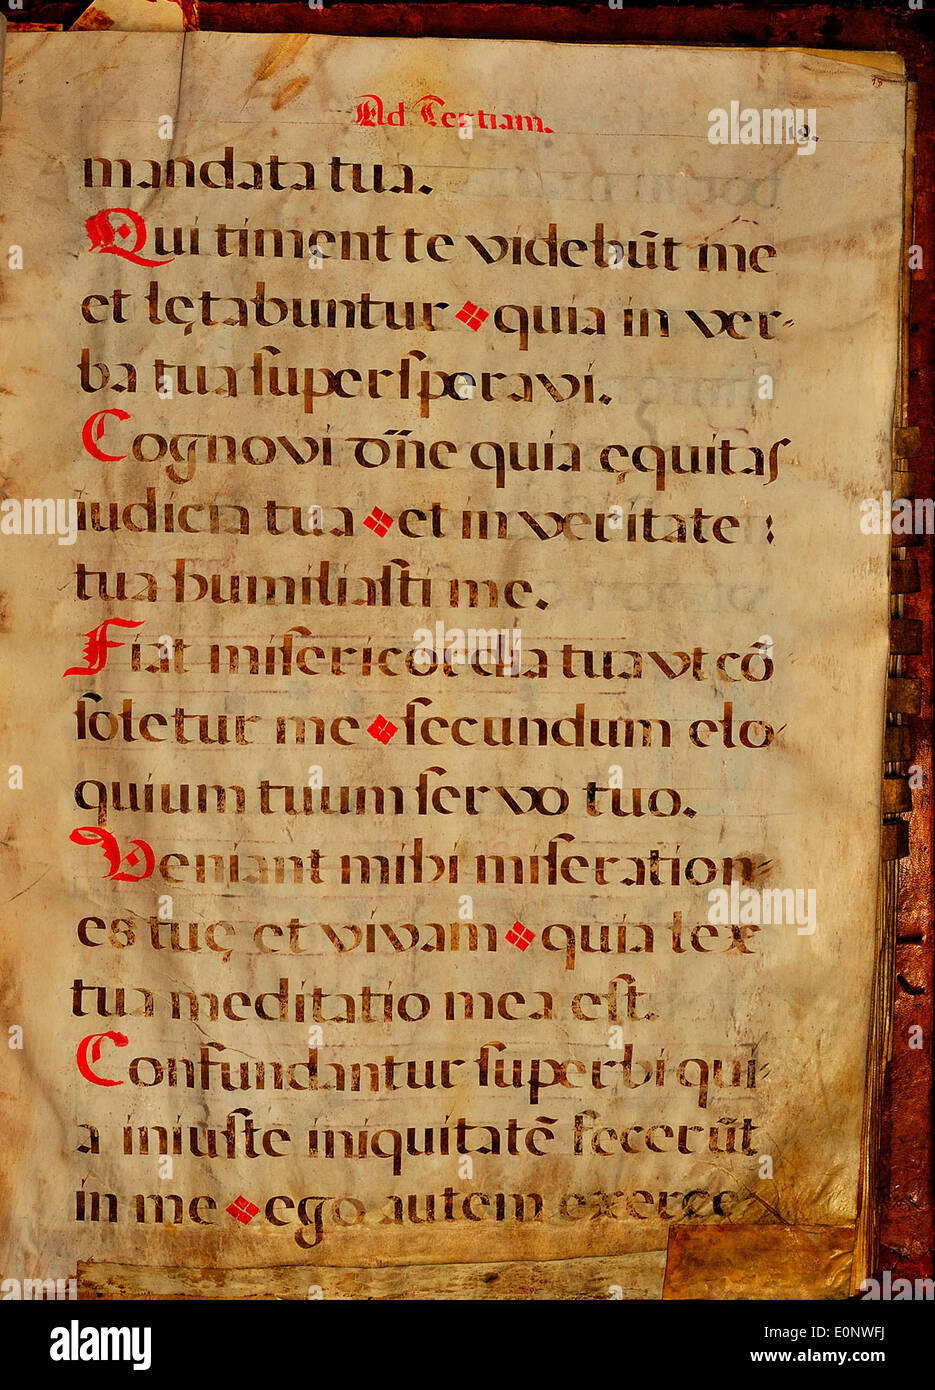 Ad Tertiam.
19.
mandata tua.
Qui timent te videbūt me
et lętabuntur quia in ver-
ba tua superſperavi.
Cognovi dn̄e quia ęquitaſ
iudicia tua et in veritate :
tua humiliaſti me.
Fiat miſericordia tua vt cō
ſoletur me ſecundum elo-
quium tuum ſervo tuo.
Veniant mihi miſeration-
es tuę et vivam quia lex
tua meditatio mea eſt.
Confundantur ſuperbi qui-
a iniuſte iniquitatē fecerūt
in me ego autem exerce
alamy
Image ID: E0NWFJ
www.alamy.com